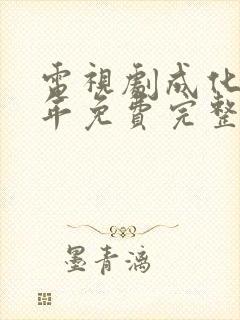 電視劇成化
年免費完整
墨青漓